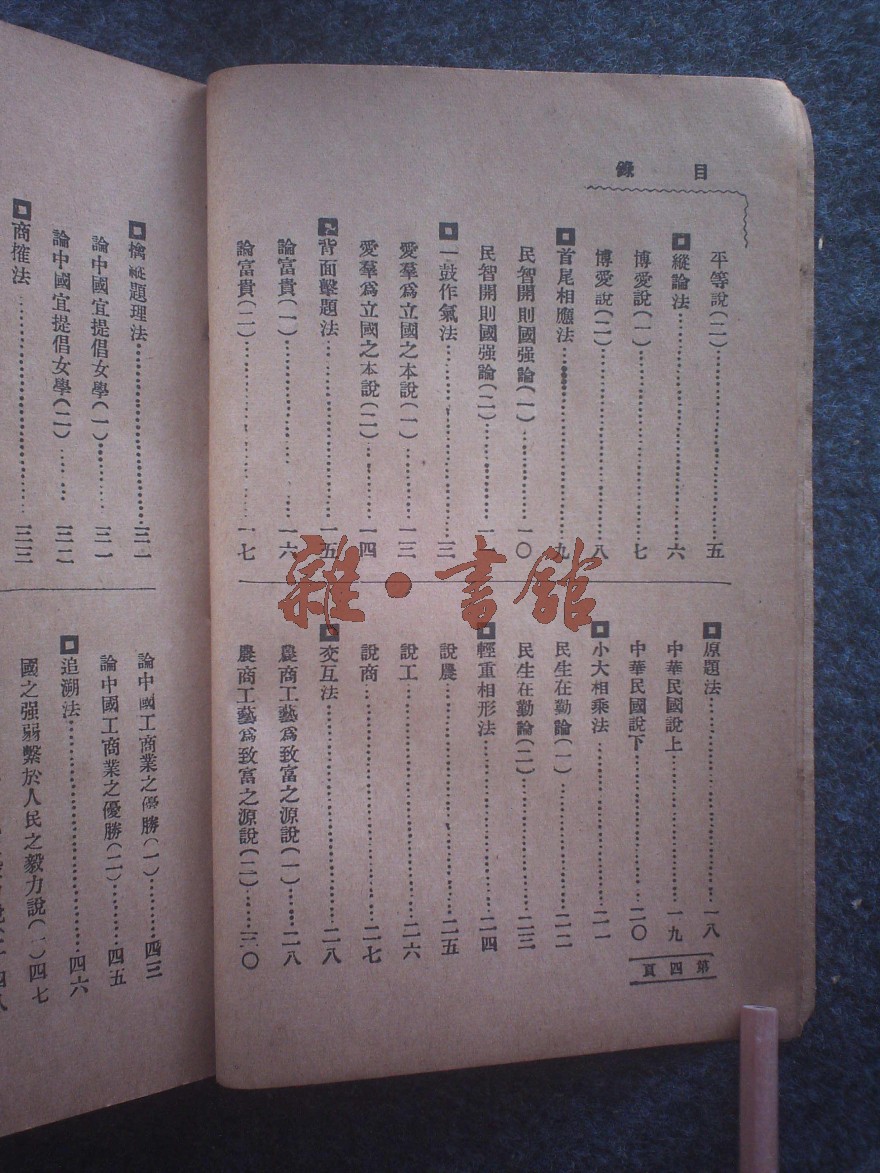 目錄
平等說(二)……五
◘縱論法……六
博愛說(一)……七
博愛說(二)……八
◘首尾相應法……九
民智開則國强論(一)……一〇
民智開則國强論(二)……一一
◘一鼓作氣法……一三
愛羣爲立國之本說(一)……一三
愛羣爲立國之本說(二)……一四
◘背面擊題法……一五
論富貴(一)……一六
論富貴(二)……一七
◘原題法……一八
中華民國說上……一九
中華民國說下……二〇
◘小大相乘法……二一
民生在勤論(一)……二二
民生在勤論(二)……二三
◘輕重相形法……二四
說農……二五
說工……二六
說商……二七
◘交互法……二八
農商工藝爲致富之源說(一)……二八
農商工藝爲致富之源說(二)……三〇
第四頁
◘擒縱題理法……三一
論中國宜提倡女學(一)……三一
論中國宜提倡女學(二)……三二
◘商搉法……三三
論中國工商業之優勝(一)……四三
論中國工商業之優勝(二)……四五
◘追溯法……四六
國之强弱繫於人民之毅力說(一)四七
雜·書館